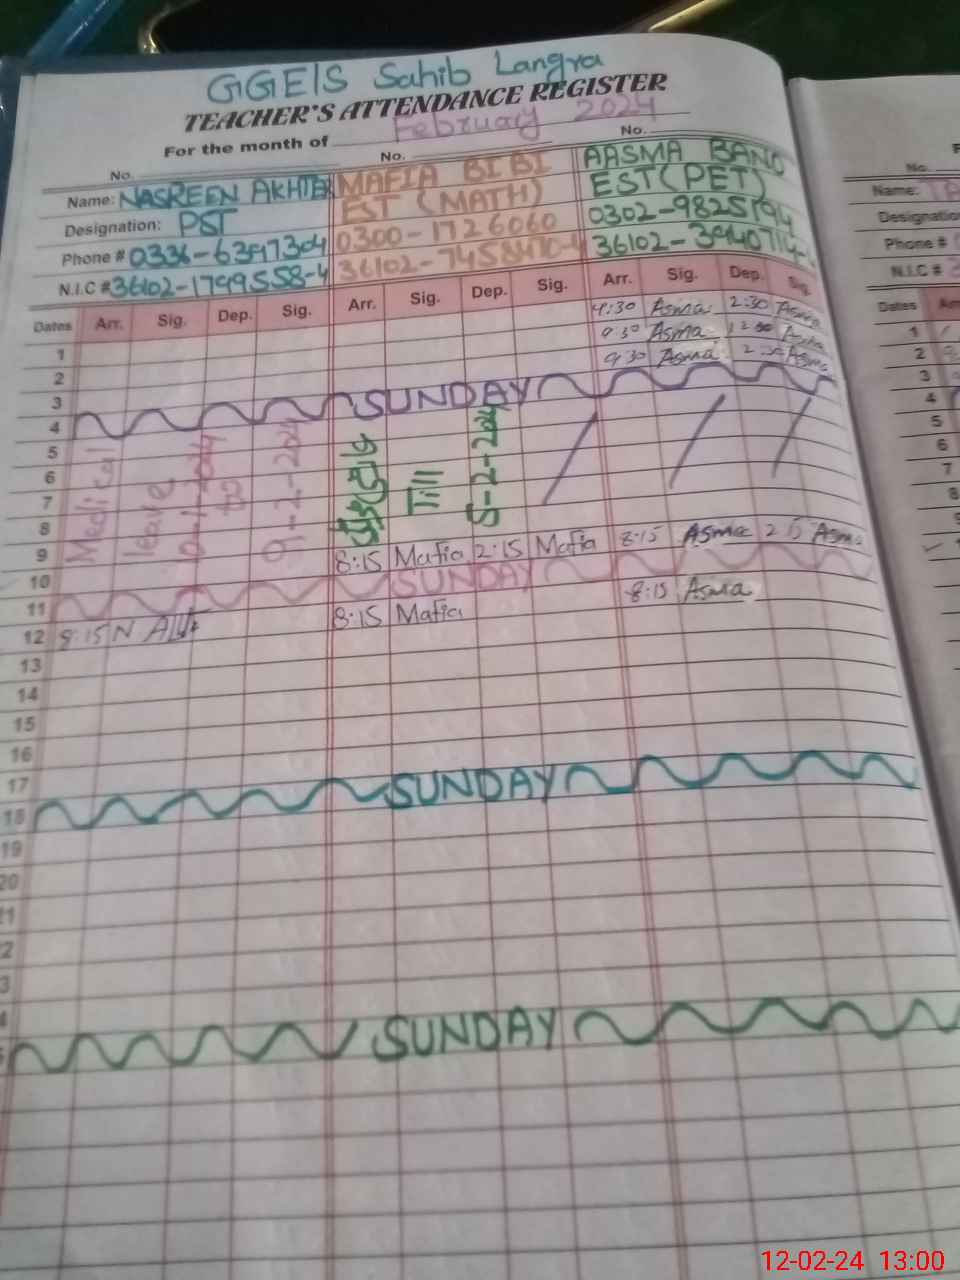 GGE/S Sahib Langra
TEACHER'S ATTENDANCE REGISTER
For the month of February 2024
No. No. No.
Name: NASREEN AKHTER MAFIA BI BI AASMA BANO
Designation: PST EST (MATH) EST (PET)
Phone # 0336-6397304 0300-1726060 0302-9825194
N.I.C # 36102-1799558-4
Dates Arr. Sig. Dep. Sig. Arr. Sig. Dep. Sig. Arr. Sig. Dep. Sig.
1 9:30 Asma 2:30 Asma
2 9:30 Asma Asma
3 9:30 Asma Asma
4 SUNDAY
5
6
7
8
Medical leave to 9-2-2024
Till 8-2-2024
9 8:15 Mafia 2:15 Mafia 8:15 Asma 2 15 Asma
10
11 SUNDAY
12 8:15 8:15 Mafia 8:15 Asma
13
14
15
16
17
18 SUNDAY
19
20
21
2
3
4
SUNDAY
No.
Name:
Designation
Phone #
N.I.C #
Dates
1
2
3
4
5
6
7
8
9
12-02-24 13:00